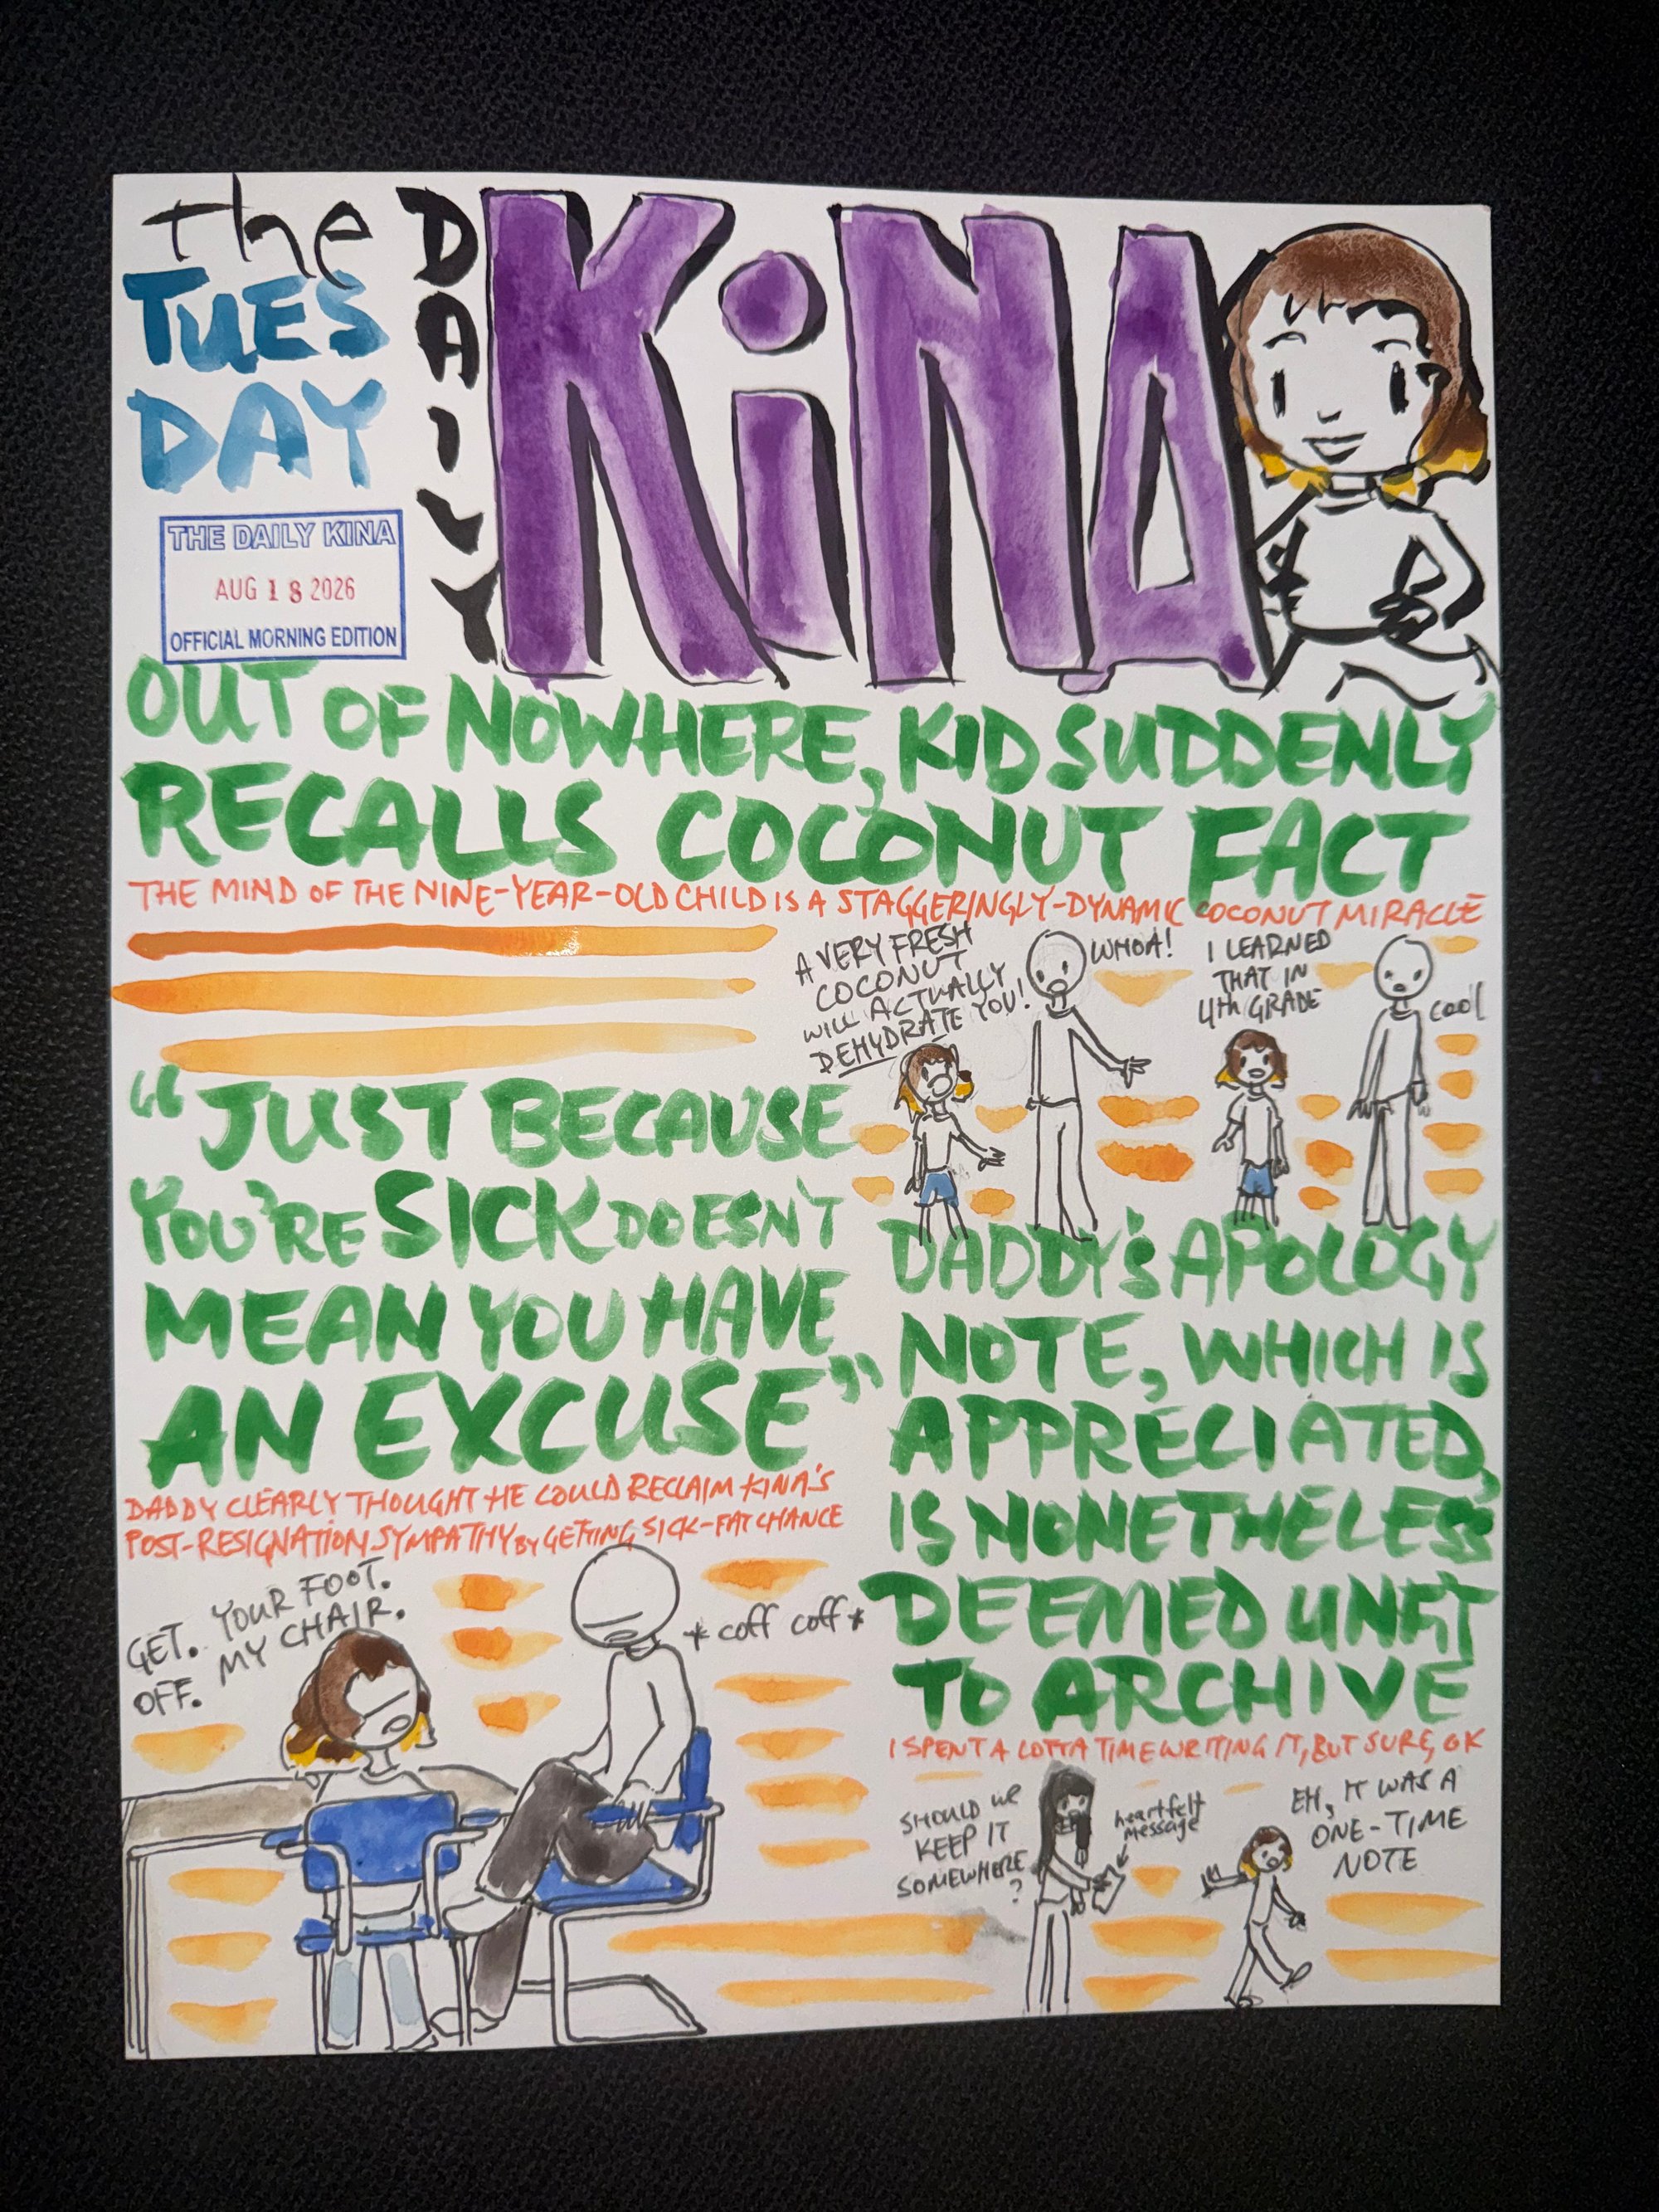 the
TUES
DAY
DAILY
KiNA
THE DAILY KINA
AUG 18 2026
OFFICIAL MORNING EDITION
OUT OF NOWHERE, KID SUDDENLY
RECALLS COCONUT FACT
THE MIND OF THE NINE-YEAR-OLD CHILD IS A STAGGERINGLY-DYNAMIC COCONUT MIRACLE
A VERY FRESH
COCONUT
WILL ACTUALLY
DEHYDRATE YOU!
WHOA!
I LEARNED
THAT IN
4th GRADE
cool
"JUST BECAUSE
YOU'RE SICK DOESN'T
MEAN YOU HAVE
AN EXCUSE"
DADDY CLEARLY THOUGHT HE COULD RECLAIM KINA'S
POST-RESIGNATION SYMPATHY BY GETTING SICK-FAT CHANCE
GET. YOUR FOOT.
OFF. MY CHAIR.
*coff coff*
DADDY'S APOLOGY
NOTE, WHICH IS
APPRECIATED,
IS NONETHELESS
DEEMED UNFIT
TO ARCHIVE
I SPENT A LOTTA TIME WRITING IT, BUT SURE, OK
SHOULD WE
KEEP IT
SOMEWHERE
?
heartfelt
message
EH, IT WAS A
ONE-TIME
NOTE